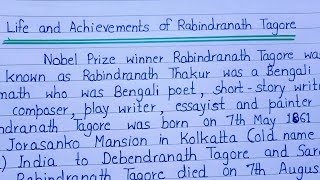 Life and Achievements of Rabindranath Tagore
Nobel Prize winner Rabindranath Tagore was
known as Rabindranath Thakur was a Bengali
math who was Bengali poet, short-story write
composer, play writer, essayist and painter
ndranath Tagore was born on 7th May 1861
Jorasanko Mansion in Kolkatta (old name
) India to Debendranath Tagore and Sara
Rabindranath Tagore died on 7th August